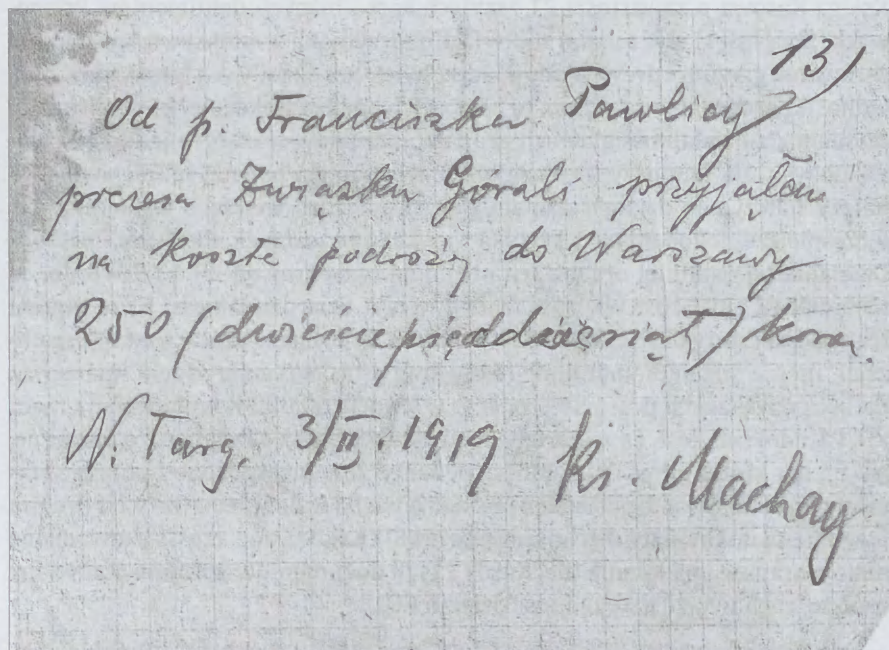 13)
Od p. Franciszka Pawlicy
prezesa Związku Górali przyjąłem
na koszta podroży do Warszawy
250 (dwieściepięćdziesiąt) koron.
N. Targ, 3/II. 1919 ks. Machay